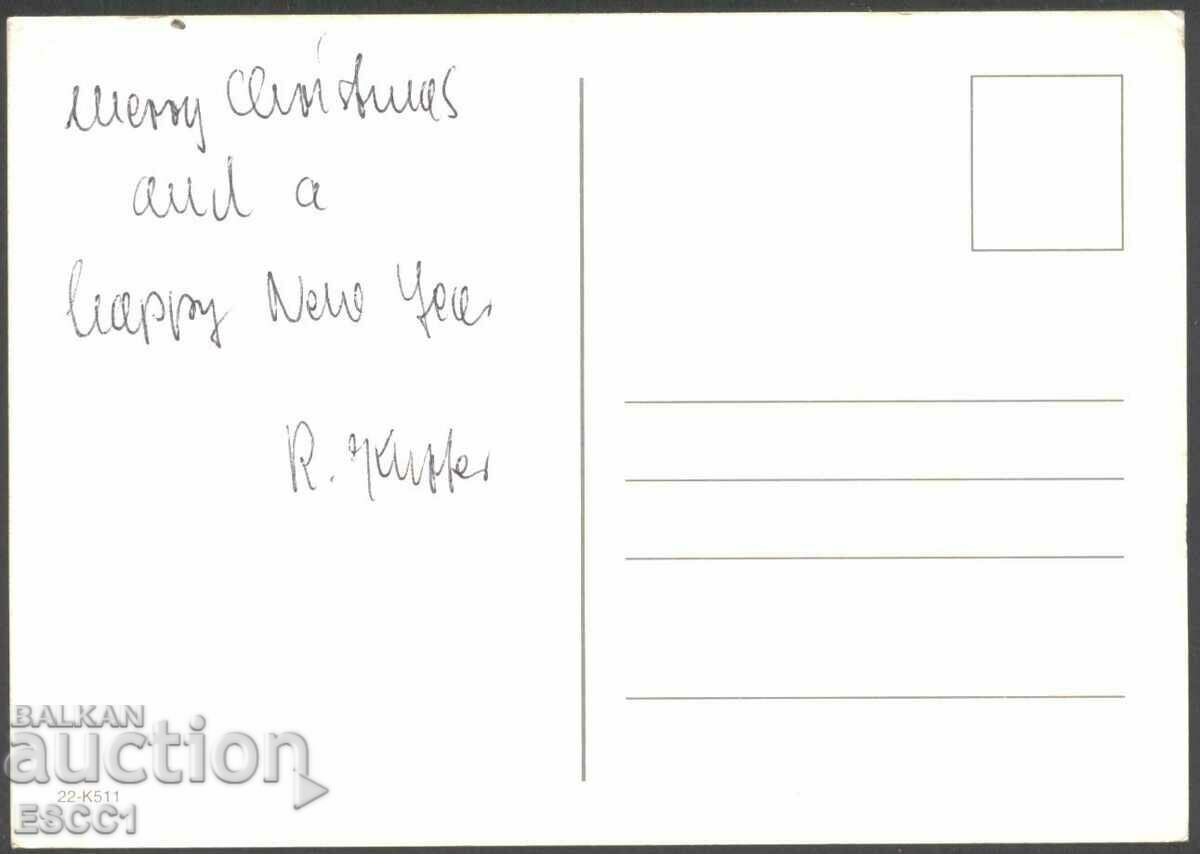 Merry Christmas
and a
happy New Year
R.
BALKAN
auction
22-K511
ESCC1